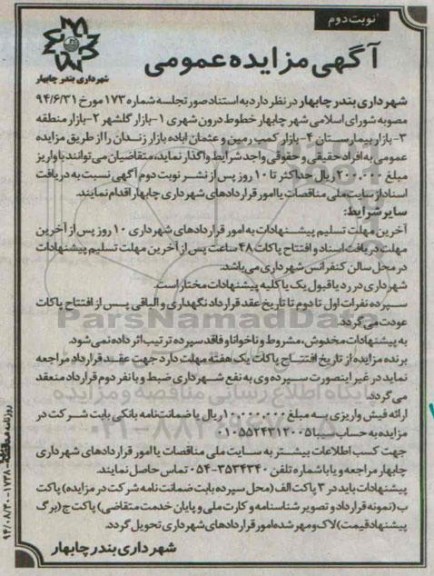 نوبت دوم
شهرداری بندر چابهار
آگهی مزایده عمومی
شهرداری بندر چابهار در نظر دارد به استناد صورتجلسه شماره ۱۷۳ مورخ ۹۴/۶/۳۱
مصوبه شورای اسلامی شهر چابهار خطوط درون شهری ۱-بازار گلشهر ۲-بازار منطقه
۳-بازار بیمارستان ۴-بازار کمب رمین و عثمان اباده بازار زندان را از طریق مزایده
عمومی به افراد حقیقی و حقوقی واجد شرایط واگذار نماید، متقاضیان می‌توانند با واریز
مبلغ ۲۰۰.۰۰۰ ریال حداکثر تا ۱۰ روز پس از نشر نوبت دوم آگهی نسبت به دریافت
اسناد از سایت ملی مناقصات یا امور قراردادهای شهرداری چابهار اقدام نمایند.
سایر شرایط:
آخرین مهلت تسلیم پیشنهادات به امور قراردادهای شهرداری ۱۰ روز پس از آخرین
مهلت دریافت اسناد و افتتاح پاکات ۴۸ ساعت پس از آخرین مهلت تسلیم پیشنهادات
در محل سالن کنفرانس شهرداری می‌باشد.
شهرداری در رد یا قبول یک یا کلیه پیشنهادات مختار است.
سپرده نفرات اول تا دوم تا تاریخ عقد قرارداد نگهداری و الباقی پس از افتتاح پاکات
عودت می‌گردد.
به پیشنهادات مخدوش، مشروط و ناخوانا و فاقد سپرده ترتیب اثر داده نمی‌شود.
برنده مزایده از تاریخ افتتاح پاکات یک هفته مهلت دارد جهت عقد قرارداد مراجعه
نماید در غیر اینصورت سپرده وی به نفع شهرداری ضبط و با نفر دوم قرارداد منعقد
می‌گردد.
ارائه فیش واریزی به مبلغ ۱۰.۰۰۰.۰۰۰ ریال یا ضمانت نامه بانکی بابت شرکت در
مزایده به حساب سیبا ۰۱۰۵۵۲۴۳۱۳۰۰۵
جهت کسب اطلاعات بیشتر به سایت ملی مناقصات یا امور قراردادهای شهرداری
چابهار مراجعه و یا با شماره تلفن ۳۵۳۴۳۴۰-۰۵۴ تماس حاصل نمایند.
پیشنهادات باید در ۳ پاکت الف (محل سپرده بابت ضمانت نامه شرکت در مزایده) پاکت
ب (نمونه قرارداد و تصویر شناسنامه و کارت ملی و پایان خدمت متقاضی) پاکت ج (برگ
پیشنهاد قیمت) لاک و مهر شده امور قراردادهای شهرداری تحویل گردد.
شهرداری بندر چابهار
ParsNamadData
پایگاه اطلاع رسانی مناقصه و مزایده